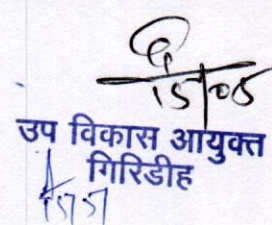 15/05
उप विकास आयुक्त
गिरिडीह